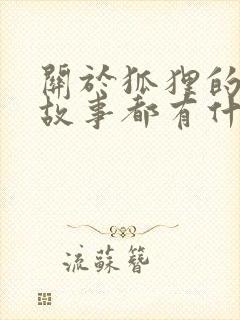 關於狐狸的
故事都有什
流蘇簪